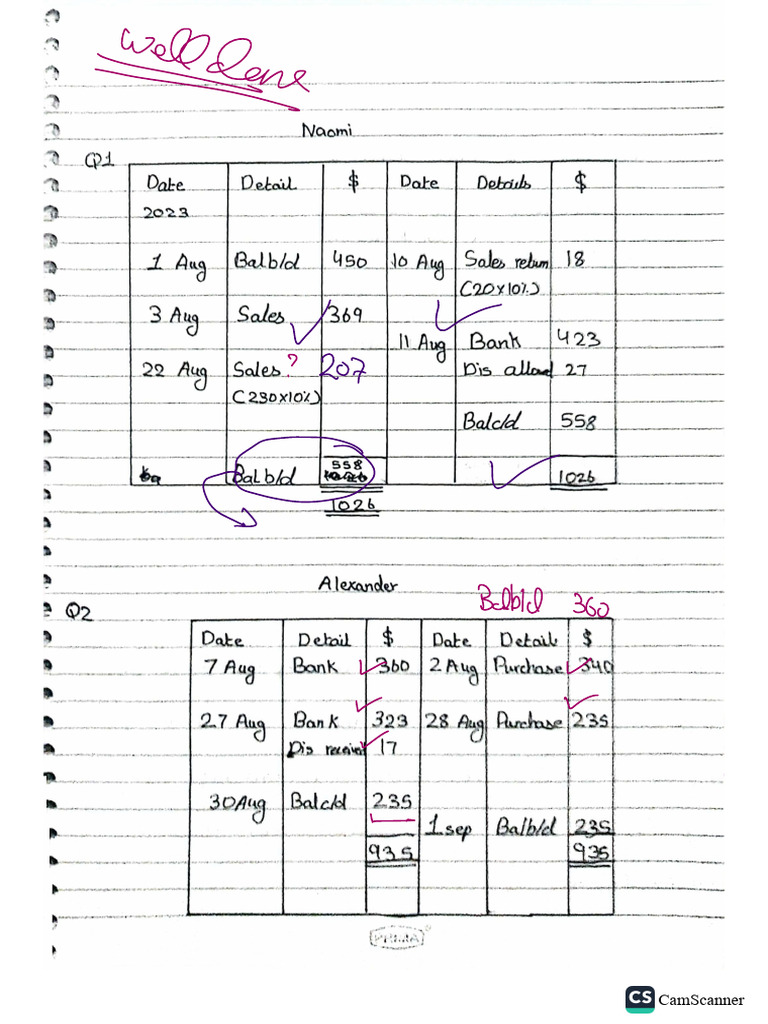 Well done
Naomi
Q1
Date Detail $ Date Details $
2023
1 Aug Balb/d 450 10 Aug Sales return 18
(20x10%)
3 Aug Sales 369
11 Aug Bank 423
22 Aug Sales ? 207 Dis allowed 27
(230x10%)
Balc/d 558
Balb/d 558 1026
1026
Alexander
Balb/d 360
Q2
Date Detail $ Date Detail $
7 Aug Bank 360 2 Aug Purchase 340
27 Aug Bank 323 28 Aug Purchase 235
Dis received 17
30 Aug Balc/d 235
1 sep Balb/d 235
935 935
CS CamScanner